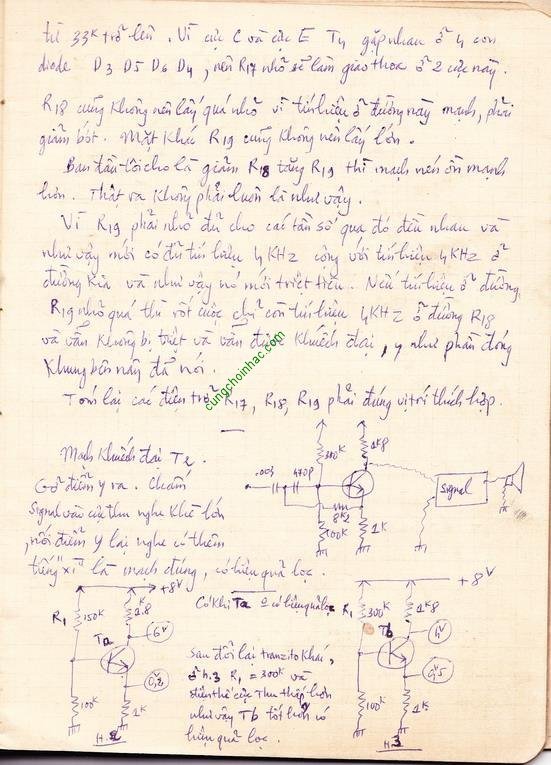 từ 33K trở lên. Vì cực C và cực E T4 gặp nhau ở 4 con
diode D3 D5 D6 D4, nên R17 nhỏ sẽ làm giao thoa ở 2 cực này.
R18 cũng không nên lấy quá nhỏ vì tín hiệu ở đường này mạnh, phải
giảm bớt. Mặt khác R19 cũng không nên lấy lớn.
Ban đầu tôi cho là giảm R18 tăng R19 thì mạch nén ồn mạnh
hơn. Thật ra không phải luôn là như vậy.
Vì R19 phải nhỏ đủ cho các tần số qua đó đều nhau và
như vậy mới có đủ tín hiệu 4KHz cộng với tín hiệu 4KHz ở
đường kia và như vậy nó mới triệt tiêu. Nếu tín hiệu ở đường
R19 nhỏ quá thì rốt cuộc chỉ còn tín hiệu 4KHz ở đường R18
và vẫn không bị triệt và vẫn được khuếch đại, y như phần đóng
khung bên này đã nói.
Tóm lại các điện trở R17, R18, R19 phải đúng vị trí thích hợp.
cungchoinhac.com
Mạch khuếch đại T2.
Gỡ điểm y ra. Chấm
signal vào cực thu nghe khẽ lớn
, nối điểm y lại nghe có thêm
tiếng "xì" là mạch đúng, có hiệu quả lọc.
.003 470P
300K 1K8
8K2
100K 1K
Signal
+8V
R1 150K 1K8
Ta
6V
0,3
100K 1K
H.2
Có khi Ta có hiệu quả lọc
sau đổi lại tranzito khác,
ở h.3 R1 = 300K và
điện thế cực thu thấp hơn
như vậy Tb tốt hơn có
hiệu quả lọc.
+8V
R1 300K 1K8
Tb
4V
0,5
100K 1K
H.3